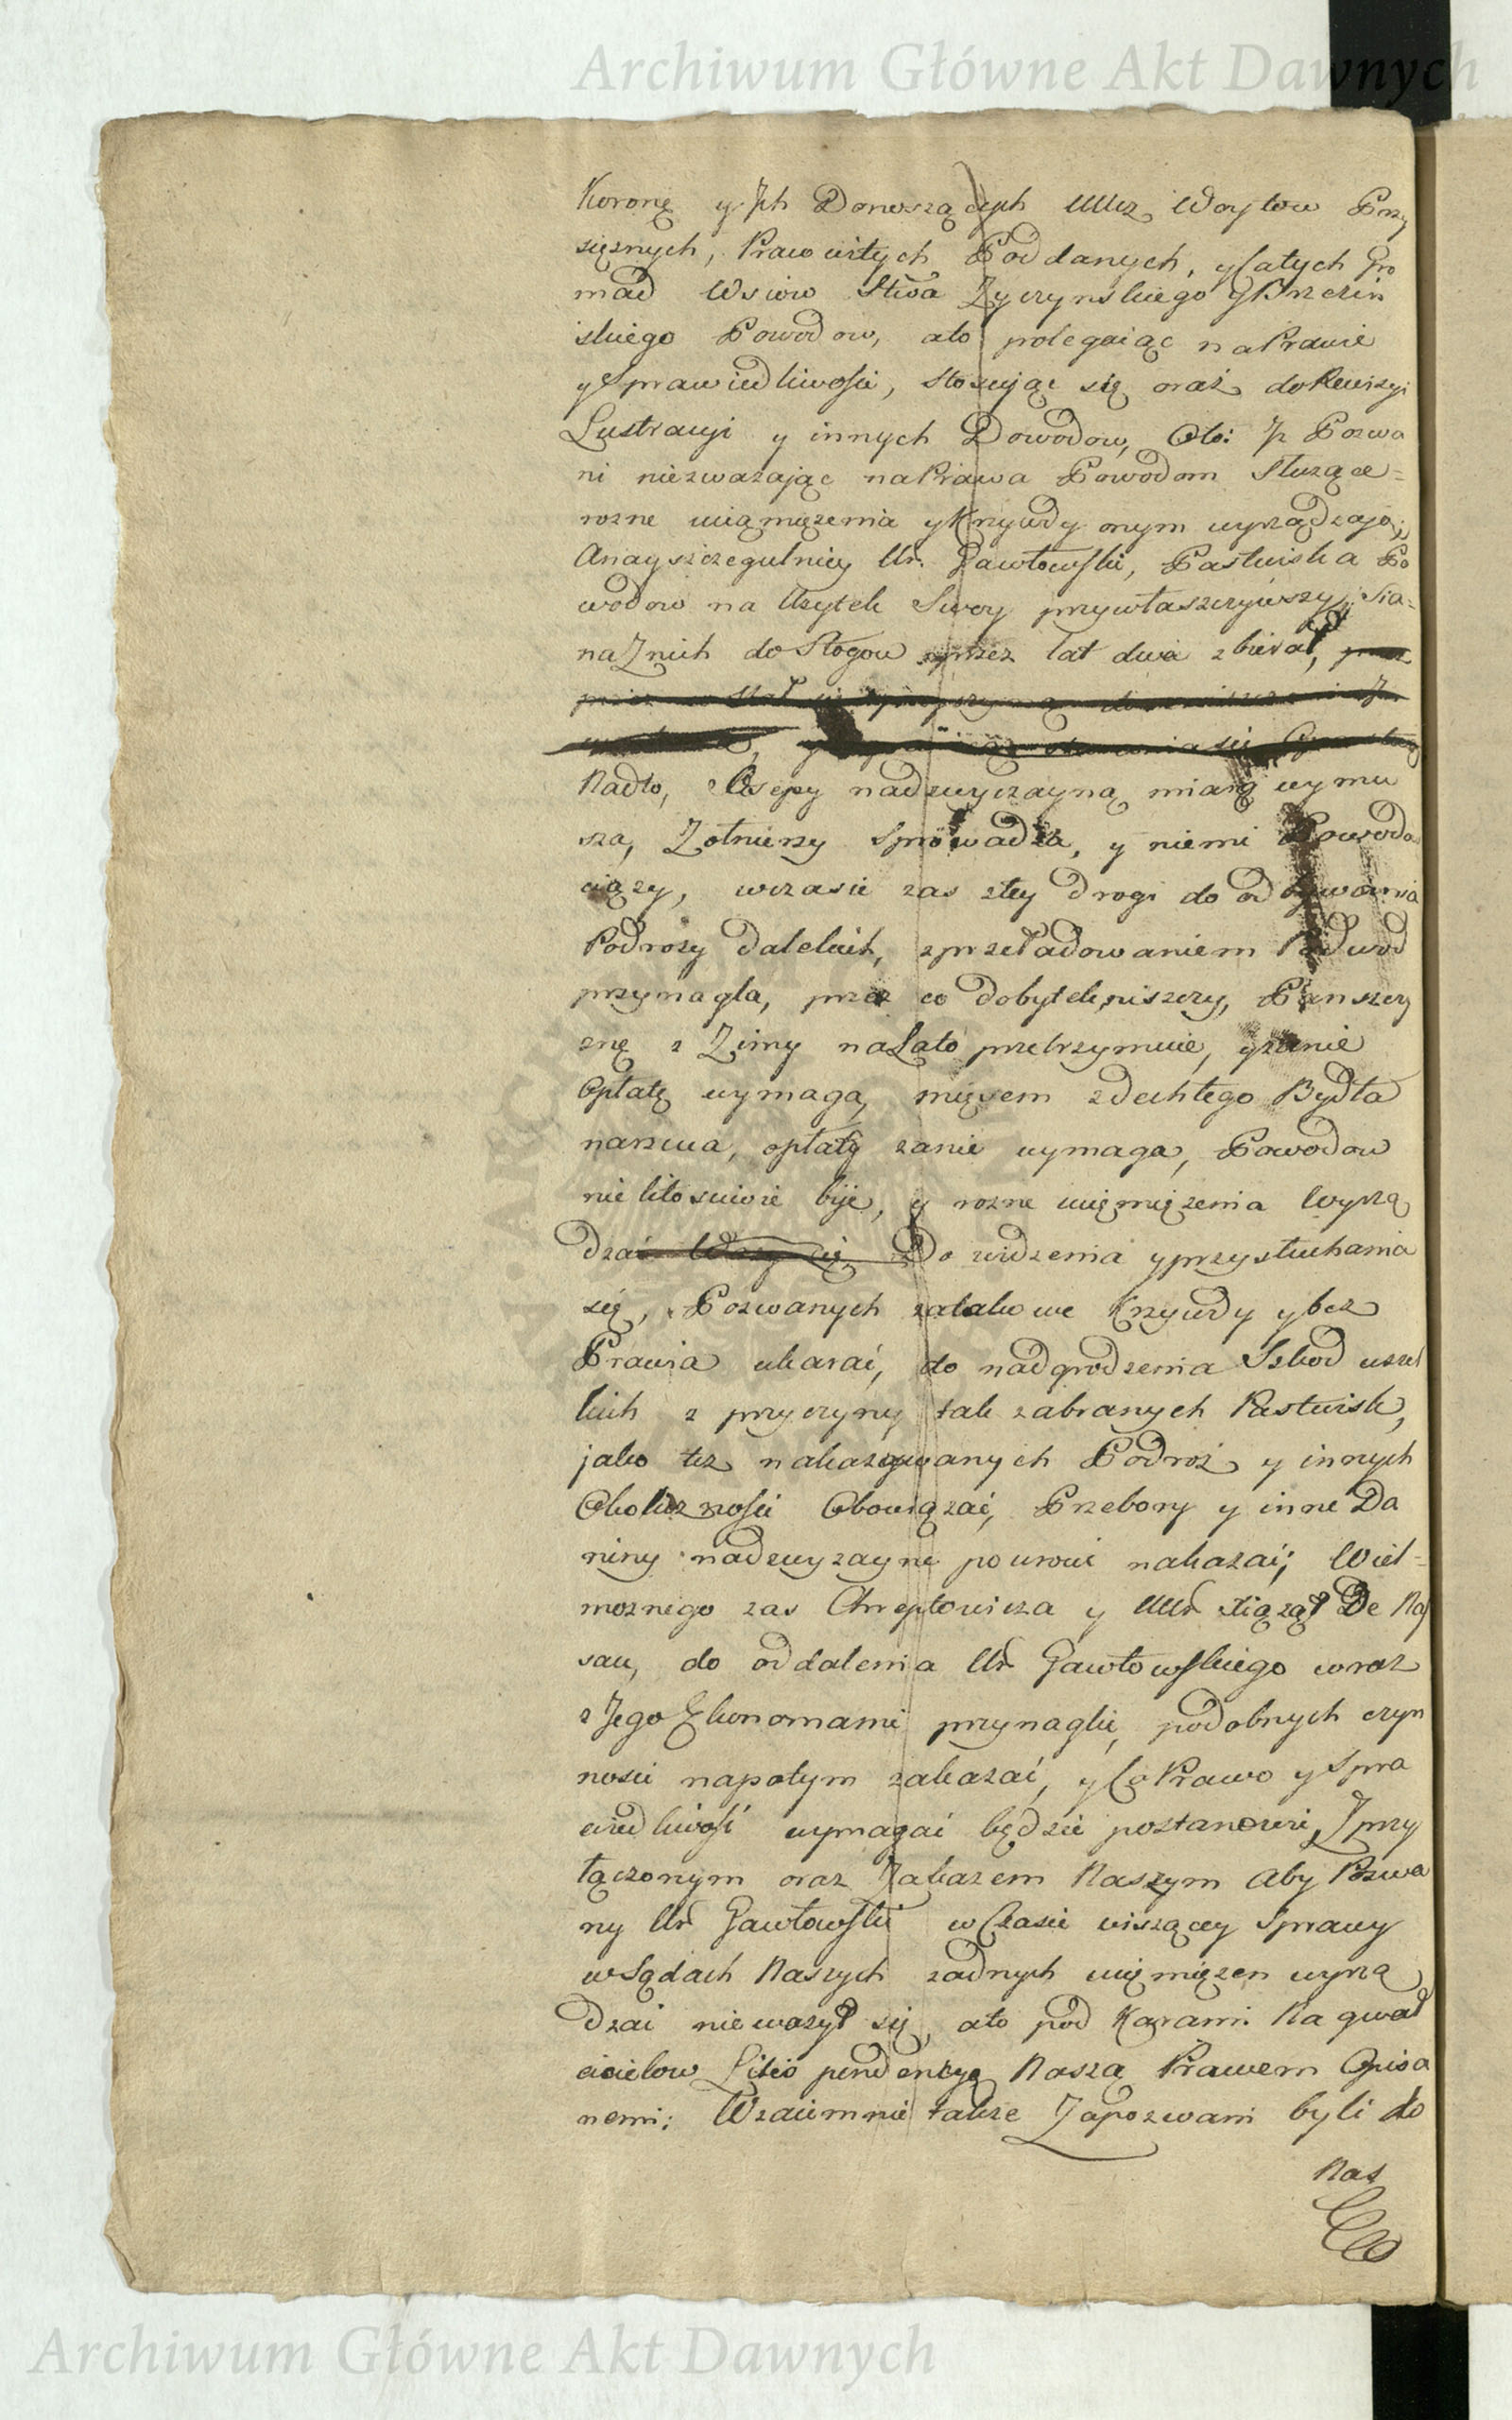 Archiwum Główne Akt Dawnych
Koronę y Jch Donoszących UUcz. Woytow Przy
sięznych, Prawowitych Poddanych, y Całych Gro
mad Wsiow Stwa Zyczynskiego y Brzezin
skiego Powodow, ato polegaiąc na Prawie
y Sprawiedliwości, Stosując się oraz do Rewizyi
Lustracyi y innych Dowodow, Oto: Jz Pozwa
ni niezwazając na Prawa Powodom Słuzące
rozne uciąmięzenia y Krzywdy onym wyrządzają;
A nayszczegulniey Ur. Gawłowski, Pastwiska Po
wodow na Uzytek Swoy przywłaszczywszy, Sia=
na Znich do Stogow przez lat dwa zbierał,
Nadto, Osepy nadzwyczayną miarą wymu
sza, Zołnierzy Sprowadza, y niemi Powodow
ciązy, wczasie zas złey drogi do odbywania
Podrozy dalekich, z przeładowaniem Podwod
przynagla, przez co dobytek niszczy, Panszczy
znę z Zimy na Lato przetrzymuie, y zanie
Opłatę wymaga, mięsem zdechłego Bydła
narzuca, opłaty zanie wymaga, Powodow
nielitosciwie bije, y rozne uciemięzenia Wyrzą
dza Do widzenia y przysłuchania
się, Pozwanych zatakowe Krzywdy y bez
Prawia ukarać, do nadgrodzenia Szkod wszel
kich z przyczyny tak zabranych Pastwisk,
jako tez nakazywanych Podroż y innych
Okoliczności Obowiązać, Przebory y inne Da
niny nadzwyzayne powrocić nakazać; Wiel=
moznego zas Chreptowicza y UUr Xiąząt De Nas
sau, do oddalenia Ur Gawłowskiego wraz
z Jego Ekonomami przynaglić, podobnych czyn
nosci napotym zakazać, y Co Prawo y Spra
wiedliwość wymagać będzie postanowić, Z przy
łączonym oraz Zakazem Naszym Aby Pozwa
ny Ur Gawłowski w Czasie wiszącey Sprawy
w Sądach Naszych zadnych uciemięzen wyrzą
dzać niewazył się, ato pod Karami Na gwał
cicielow Litis pendencyę Naszą Prawem Opisa
nemi; Wzaiemnie takze Zapozwani byli do
Nas
Archiwum Główne Akt Dawnych